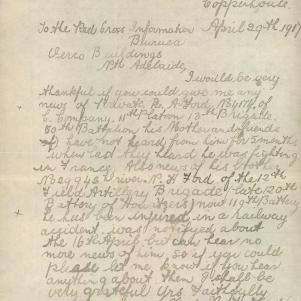 Copperhouse.
April 29th 1917
To the Red Cross Information
Bureua
Verco Buildings
Nth Adelaide
I would be very
thankful if you could give me any
news of Private R. A. Ford, of
C Company, 11th Platoon 13th Brigade.
50th Battalion his Mother and friends
have not heard from him for 3 months
when last they heard he was fighting
in France. Also news of his brother
Driver P. J. Ford of the 12th
Field Artillery Brigade late 20th
Battery of Howitzers now 119th Battery
he has been injured in a railway
accident. was notified about
the 16th April but can hear no
more news of him, so if you could
please let me know if you hear
anything about them I shall be
very grateful Yrs faithfully